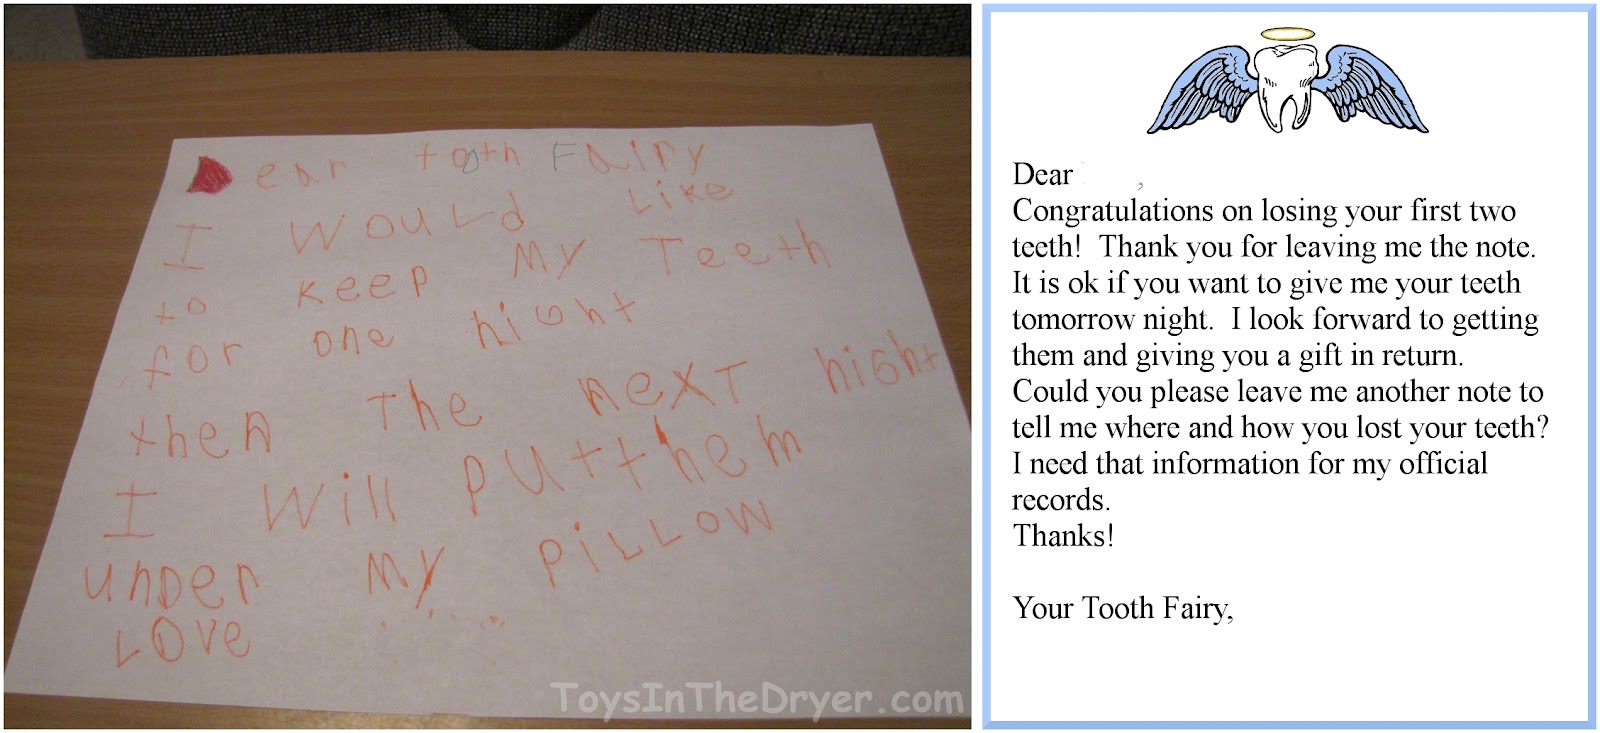 Dear tooth Fairy
I WOULd Like
to keep My Teeth
for one night
then The next night
I will put them
unDer My piLLOW
LOVe
ToysInTheDryer.com
Dear ,
Congratulations on losing your first two
teeth! Thank you for leaving me the note.
It is ok if you want to give me your teeth
tomorrow night. I look forward to getting
them and giving you a gift in return.
Could you please leave me another note to
tell me where and how you lost your teeth?
I need that information for my official
records.
Thanks!
Your Tooth Fairy,